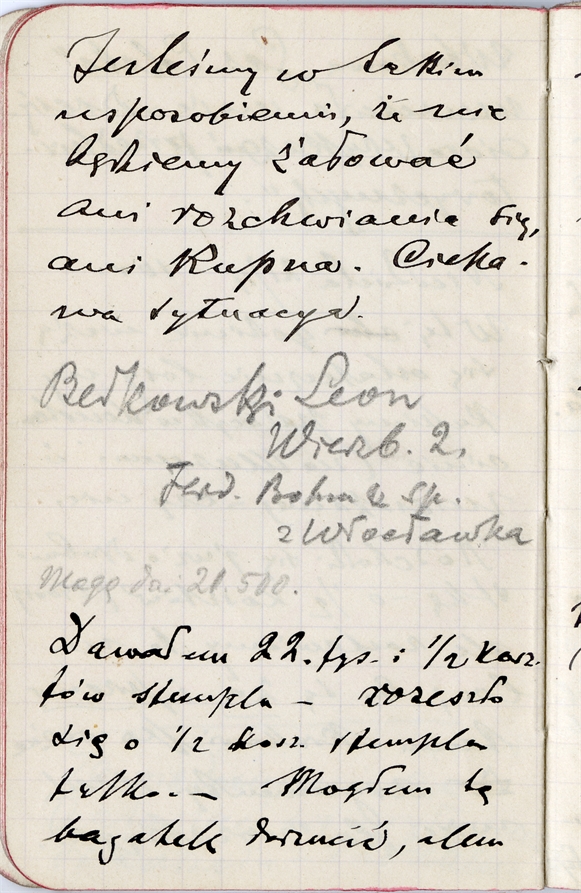 Jesteśmy w takiem
usposobieniu, że nie
będziemy żałować
ani rozchwiania się,
ani kupna. Cieka-
wa sytuacya.
Bełkowski Leon
Wierzb. 2.
Ferd. Bohm & Sp.
z Włocławka
Mogę dać 21.500.
Dawałem 22. tys. i 1/2 kosz-
tów stempla – rozeszło
się o 1/2 kosz. stempla
tylko. – Mogłem tę
bagatelę dorzucić, alem